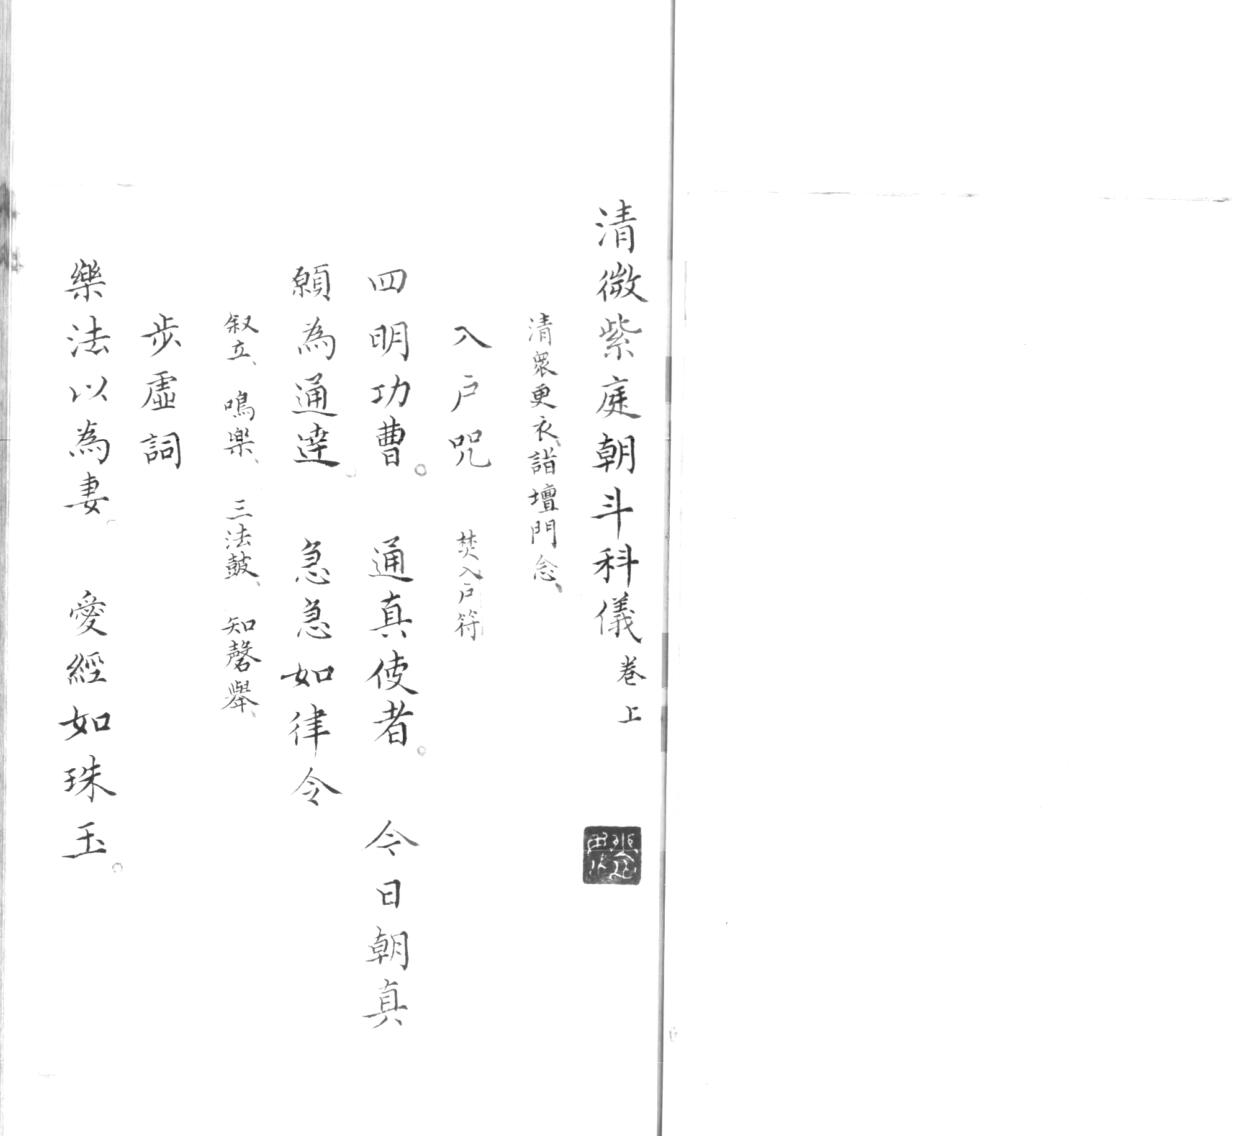 清微紫庭朝斗科儀 卷上
清衆更衣、詣壇門念、
入戶咒 焚入戶符
四明功曹。 通真使者。 今日朝真
願為通達。 急急如律令
叙立、 鳴楽、 三法鼓、 知磬舉、
步虛詞
樂法以為妻。 愛經如珠玉。